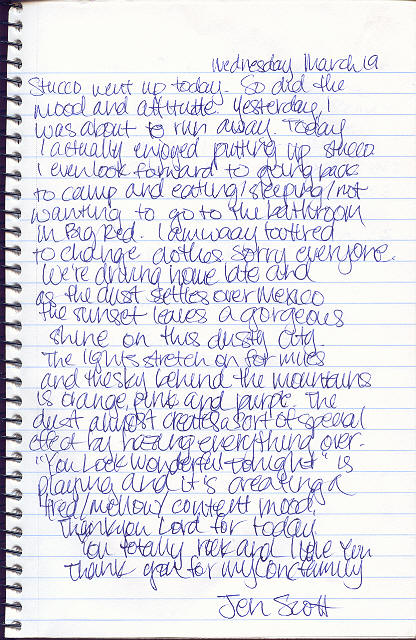 Wednesday March 19
Stucco went up today. So did the
mood and attitude. Yesterday, I
was about to run away. Today
I actually enjoyed putting up stucco.
I even look forward to going back
to camp and eating/sleeping/not
wanting to go to the bathroom
in Big Red. I am waay too tired
to change clothes sorry everyone.
We're driving home late and
as the dust settles over Mexico
the sunset leaves a gorgeous
shine on this dusty city.
The lights stretch on for miles
and the sky behind the mountains
is orange, pink and purple. The
dust almost creates a sort of special
effect by hazing everything over.
"You Look Wonderful tonight" is
playing and it's creating a
tired/mellow/content mood.
Thank you Lord for today
You totally rock and I love You
Thank you for my conc family
Jen Scott